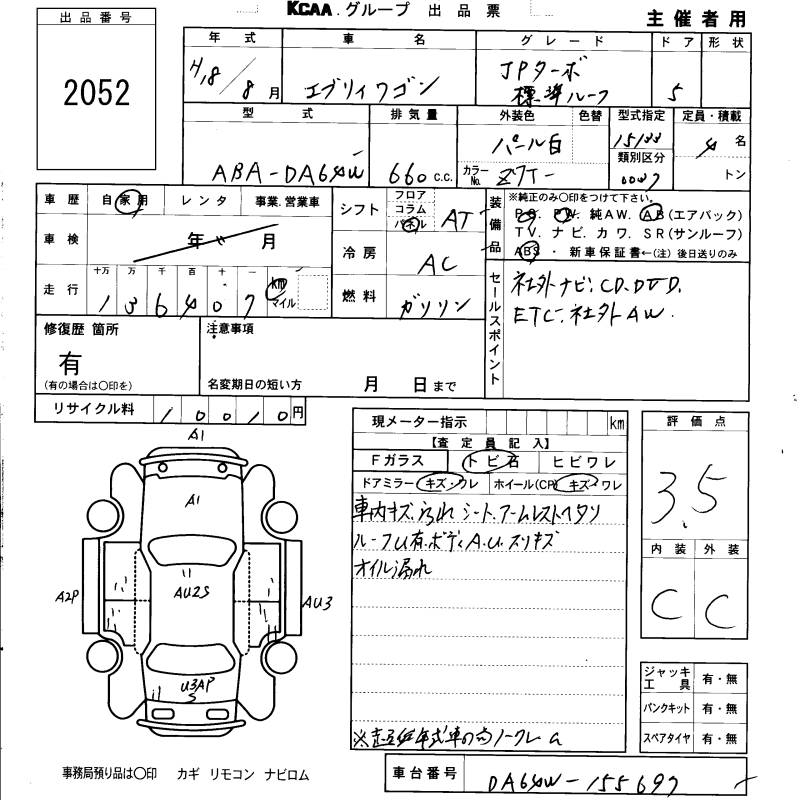 KCAA. グループ 出品票
主催者用
出品番号
2052
年式 車名 グレード ドア 形状
H18/8月 エブリィワゴン JPターボ 標準ルーフ 5
型式 排気量 外装色 色替 型式指定 定員・積載
ABA-DA64W 660 c.c. パール白 15133 4名
カラーNo. Z7T 類別区分 トン
車歴 自家用 レンタ 事業.営業車
車検 年 月
走行 十万 万 千 百 十 一
136407 km マイル
シフト フロア コラム パネル AT
冷房 AC
燃料 ガソリン
装備品 ※純正のみ〇印をつけて下さい。
PS. PW. 純AW. AB(エアバック)
TV. ナビ. カワ. SR(サンルーフ)
ABS・ 新車保証書←(注) 後日送りのみ
セールスポイント
社外ナビ. CD. DVD.
ETC. 社外AW.
修復歴 箇所 注意事項
有
(有の場合は〇印を) 名変期日の短い方 月 日まで
リサイクル料 10010円
現メーター指示 km
【査定員記入】
Fガラス トビ石 ヒビワレ
ドアミラー キズ・ワレ ホイール(CP) キズ・ワレ
車内キズ.汚れ シート.アームレストヘタリ
ルーフU有.ボディA.U.スリキズ
オイル漏れ
評価点
3.5
内装 外装
C C
A1
A1
AU2S
A2P
AU3
U3AP
S
ジャッキ工具 有・無
パンクキット 有・無
スペアタイヤ 有・無
※超低年式車の為ノークレーム
事務局預り品は〇印 カギ リモコン ナビロム
車台番号 DA64W-155697